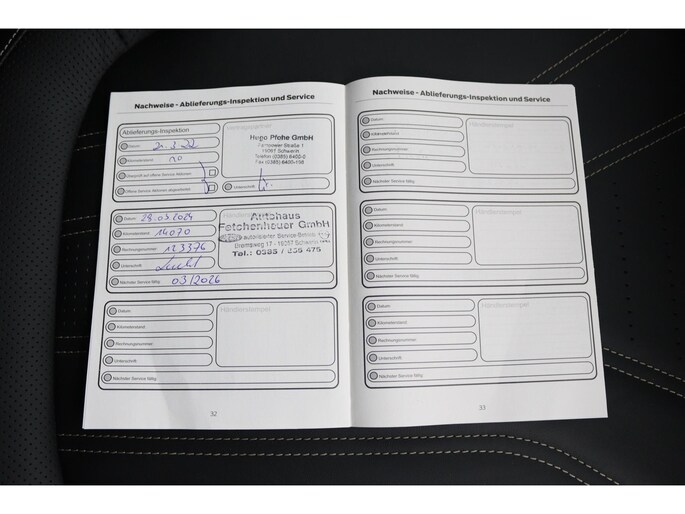 Nachweise - Ablieferungs-Inspektion und Service
Ablieferungs-Inspektion
Datum
Kilometerstand 10
Überprüft auf offene Service Aktionen
Offene Service Aktionen abgearbeitet
Hugo Pfohe GmbH
Straße 1
19061 Schwerin
Telefon (0385) 6400-0
Fax (0385) 6400-156
Unterschrift
Datum 28.03.2024
Kilometerstand 14070
Rechnungsnummer 123376
Unterschrift
Nächster Service fällig 03/2026
Händlerstempel
Autohaus
Fetchenheuer GmbH
autorisierter Service-Betrieb
17 - 19057 Schwerin
Tel.: 0385 /
Datum
Kilometerstand
Rechnungsnummer
Unterschrift
Nächster Service fällig
Händlerstempel
32
Nachweise - Ablieferungs-Inspektion und Service
Datum
Kilometerstand
Rechnungsnummer
Unterschrift
Nächster Service fällig
Händlerstempel
Datum
Kilometerstand
Rechnungsnummer
Unterschrift
Nächster Service fällig
Händlerstempel
Datum
Kilometerstand
Rechnungsnummer
Unterschrift
Nächster Service fällig
Händlerstempel
33